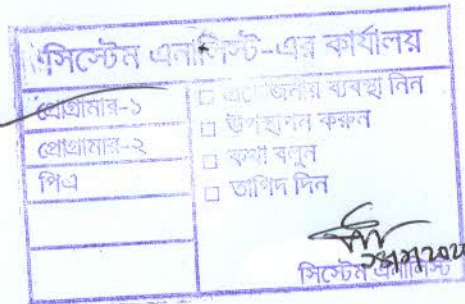 সিস্টেম এনালিস্ট-এর কার্যালয়
প্রোগ্রামার-১
প্রোগ্রামার-২
পিএ
□ প্রয়োজনীয় ব্যবস্থা নিন
□ উপস্থাপন করুন
□ কথা বলুন
□ তাগিদ দিন
সিস্টেম এনালিস্ট